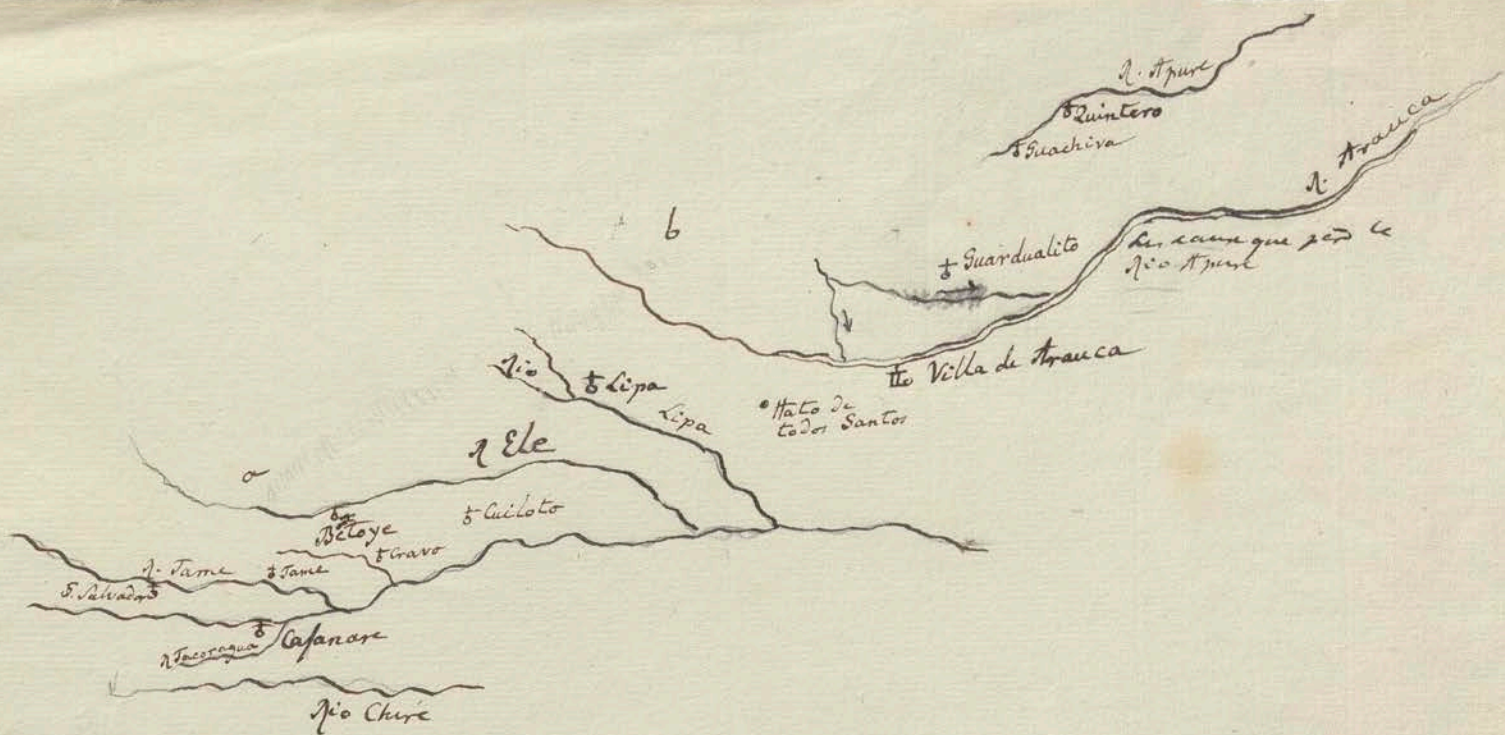 R. Apure
Quintero
Guachiva
R. Arauca
b
Guardualito
que
Rio Apure
Villa de Arauca
Rio
Lipa
Lipa
Hato de
todos Santos
R Ele
a
Betoye
Cuiloto
Cravo
R. Tame
Tame
S. Salvador
Casanare
R Tacoragua
Rio Chire